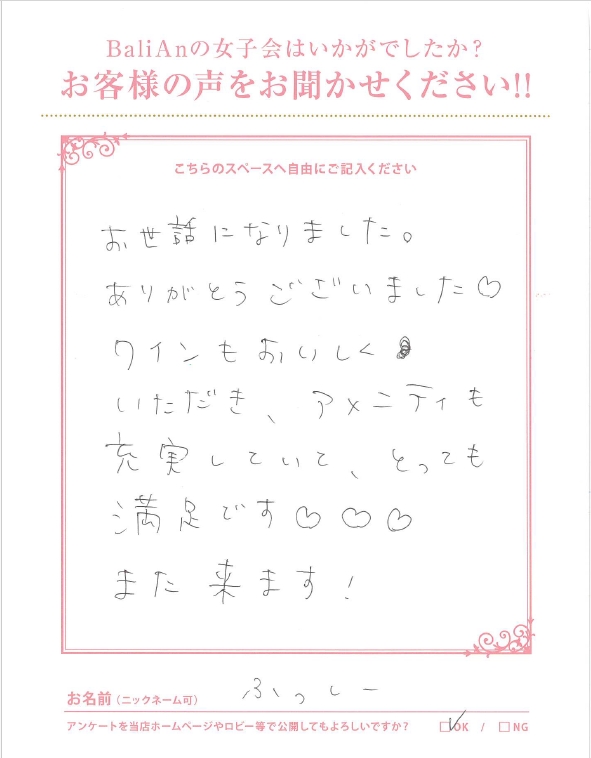 BaliAnの女子会はいかがでしたか？
お客様の声をお聞かせください!!
こちらのスペースへ自由にご記入ください
お世話になりました。
ありがとうございました♡
ワインもおいしく
いただき、アメニティも
充実していて、とっても
満足です♡♡♡
また来ます！
お名前（ニックネーム可） ふっしー
アンケートを当店ホームページやロビー等で公開してもよろしいですか？ ☑OK / □NG